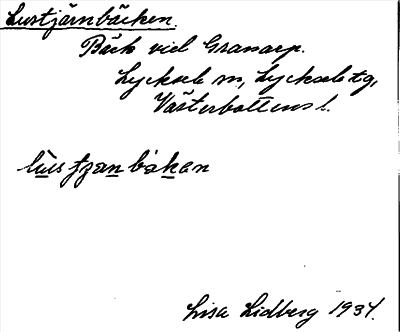 Lustjärnbäcken.
Bäck vid Granarp.
Lycksele sn, Lycksele tg,
Västerbottens l.
Lisa Lidberg 1934.